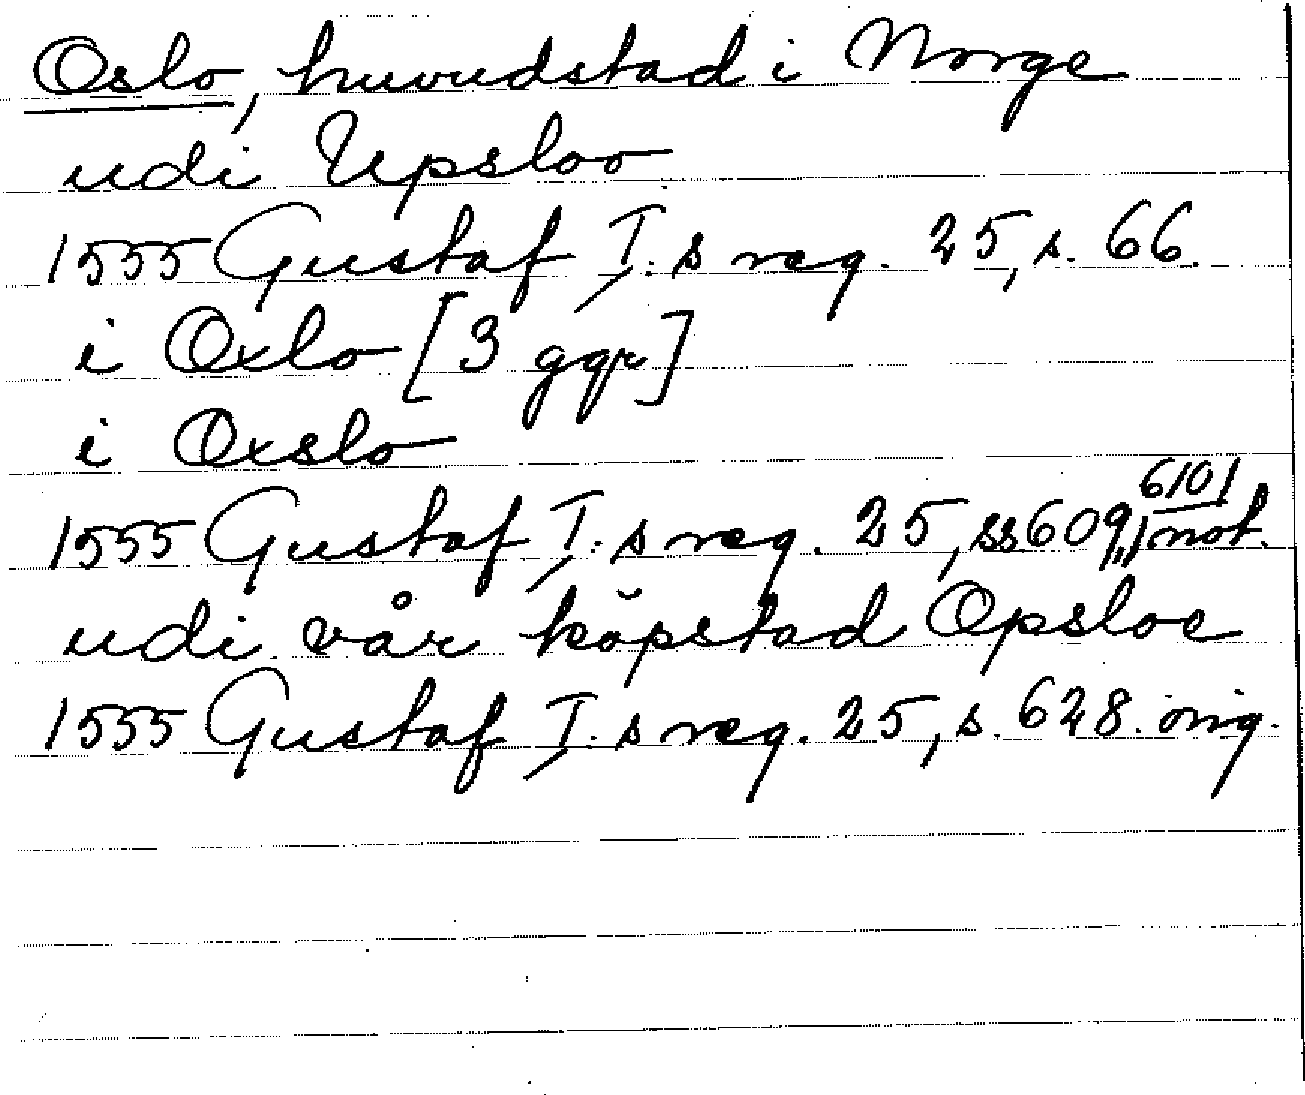 Oslo, huvudstad i Norge
udi Upsloo
1555 Gustaf I:s reg. 25, s. 66.
i Oxlo [3 ggr]
i Oxslo
1555 Gustaf I:s reg. 25, ss 609, 610, not.
udi vår köpstad Opsloe
1555 Gustaf I:s reg. 25, s. 628. orig.